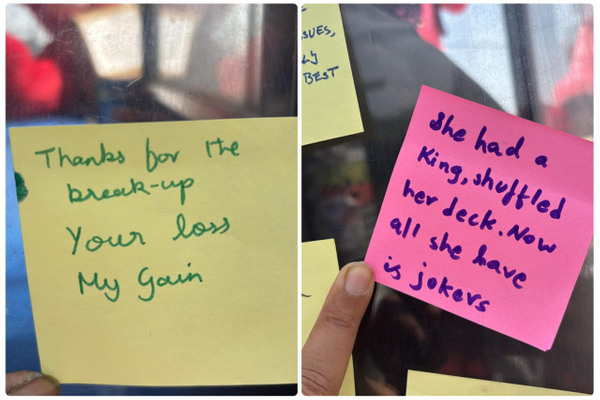 Thanks for the
break-up
Your loss
My Gain
SSUES,
BEST
She had a
King, shuffled
her deck. Now
all she have
is jokers